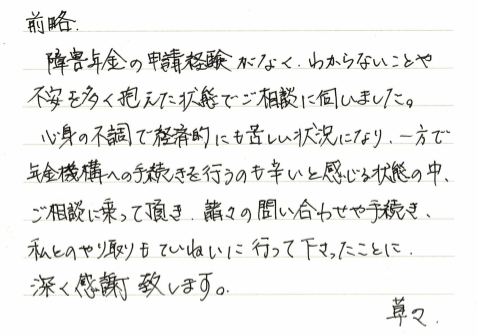 前略.
障害年金の申請経験がなく、わからないことや
不安を多く抱えた状態でご相談に伺いました。
心身の不調で経済的にも苦しい状況になり、一方で
年金機構への手続きを行うのも辛いと感じる状態の中、
ご相談に乗って頂き、諸々の問い合わせや手続き、
私とのやり取りもていねいに行って下さったことに、
深く感謝致します。
草々.